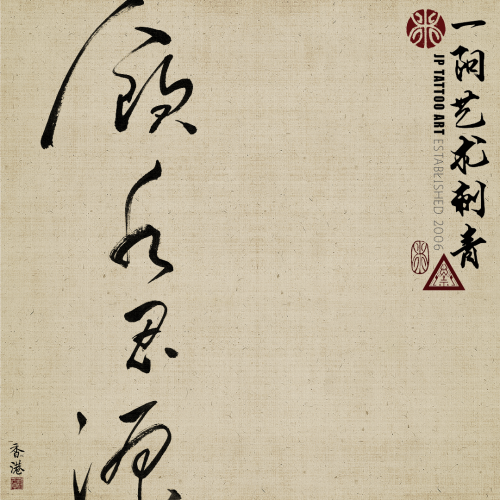 饮水思源
一阳艺术刺青
JP TATTOO ART ESTABLISHED 2006
香港